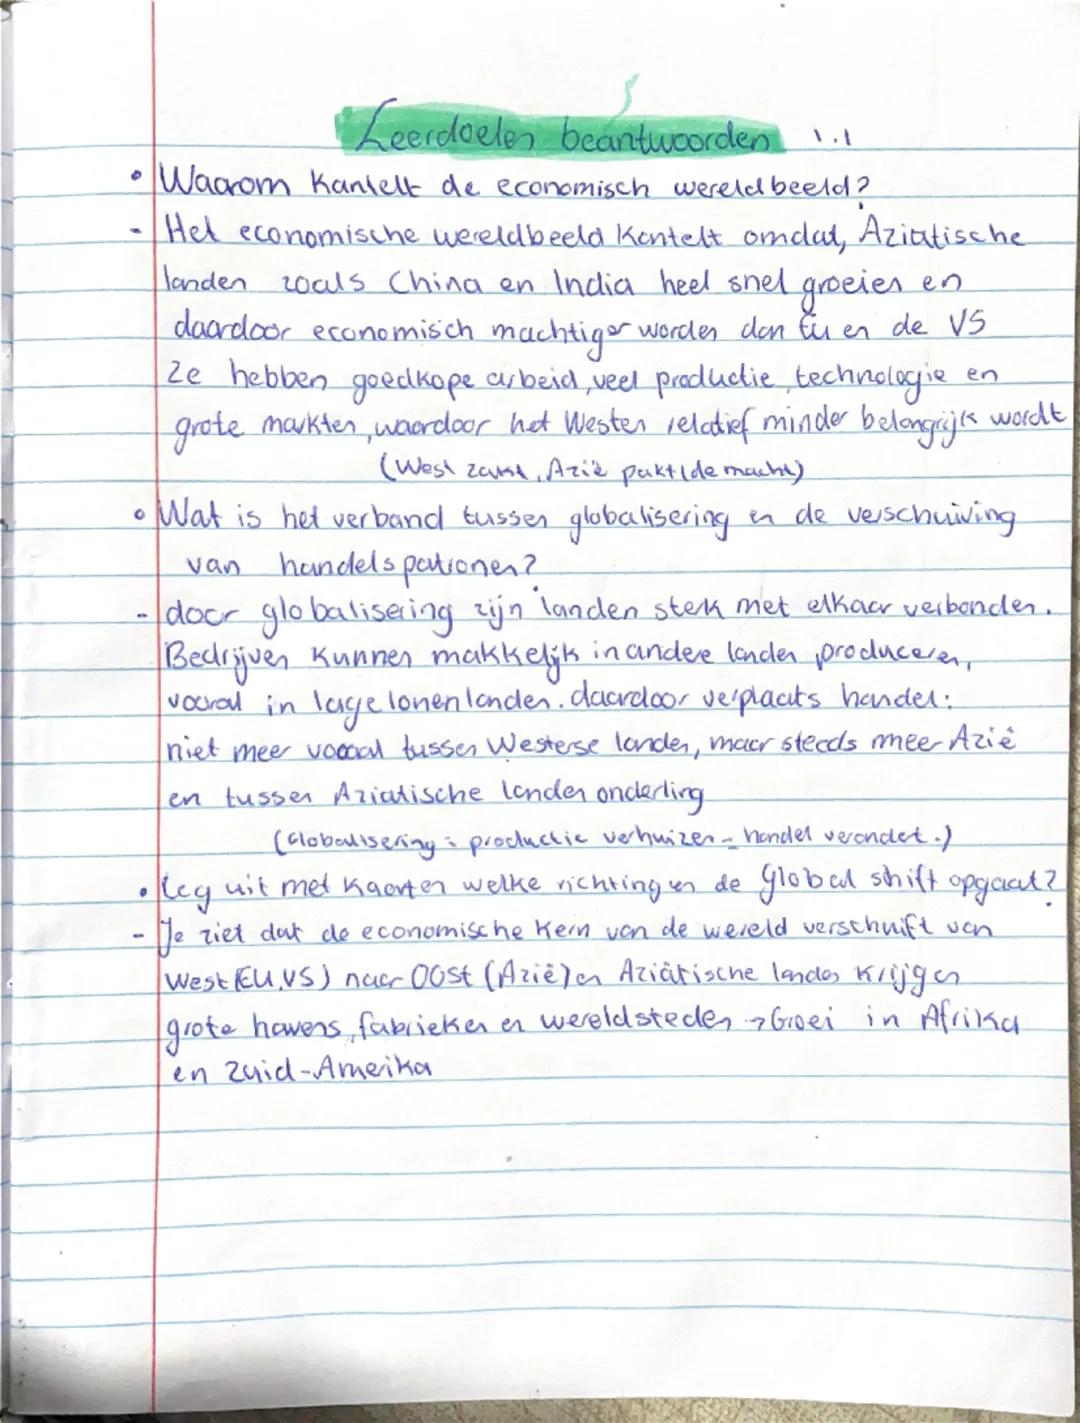 Leerdoelen beantwoorden 1.1
• Waarom kantelt de economisch wereldbeeld?
- Het economische wereldbeeld kantelt omdat, Aziatische
landen zoals China en India heel snel groeien en
daardoor economisch machtiger worden dan EU en de VS
Ze hebben goedkope arbeid, veel productie, technologie en
grote markten, waardoor het Westen relatief minder belangrijk wordt
(West zakt, Azië pakt de macht)
• Wat is het verband tussen globalisering en de verschuiving
van handelspatronen?
- door globalisering zijn landen sterk met elkaar verbonden.
Bedrijven kunnen makkelijk in andere landen produceren,
vooral in lage lonen landen. daardoor verplaats handel:
niet meer vooral tussen Westerse landen, maar steeds meer Azië
en tussen Aziatische landen onderling
(Globalisering = productie verhuizen - handel verandert.)
• leg uit met kaarten welke richtingen de Global shift opgaat?
- Je ziet dat de economische kern van de wereld verschuift van
West (EU, VS) naar Oost (Azië) en Aziatische landen krijgen
grote havens, fabrieken en wereldsteden → Groei in Afrika
en Zuid-Amerika